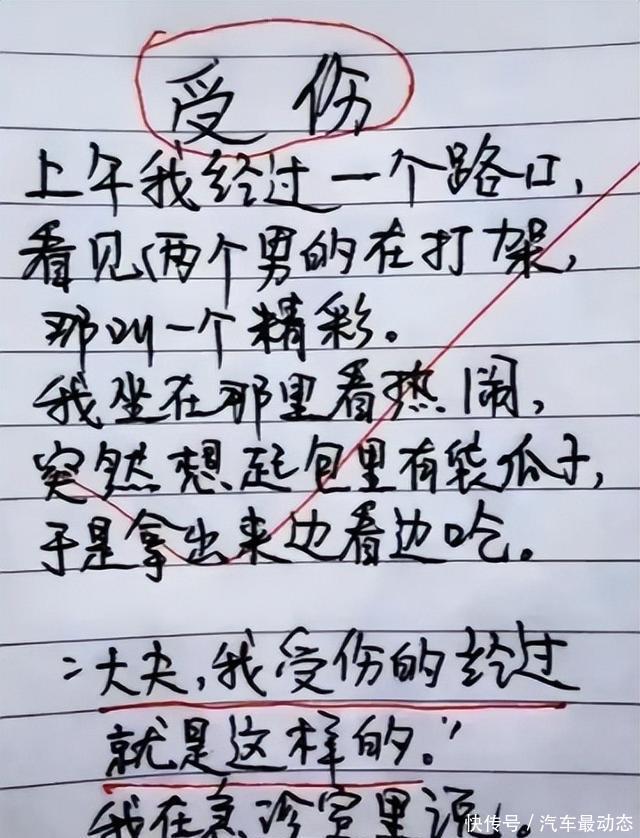 受伤
上午我经过一个路口,
看见两个男的在打架,
那叫一个精彩。
我坐在那里看热闹,
突然想起包里有袋瓜子,
于是拿出来边看边吃。
"大夫,我受伤的经过
就是这样的。"
我在急诊室里说。
快传号／汽车最动态